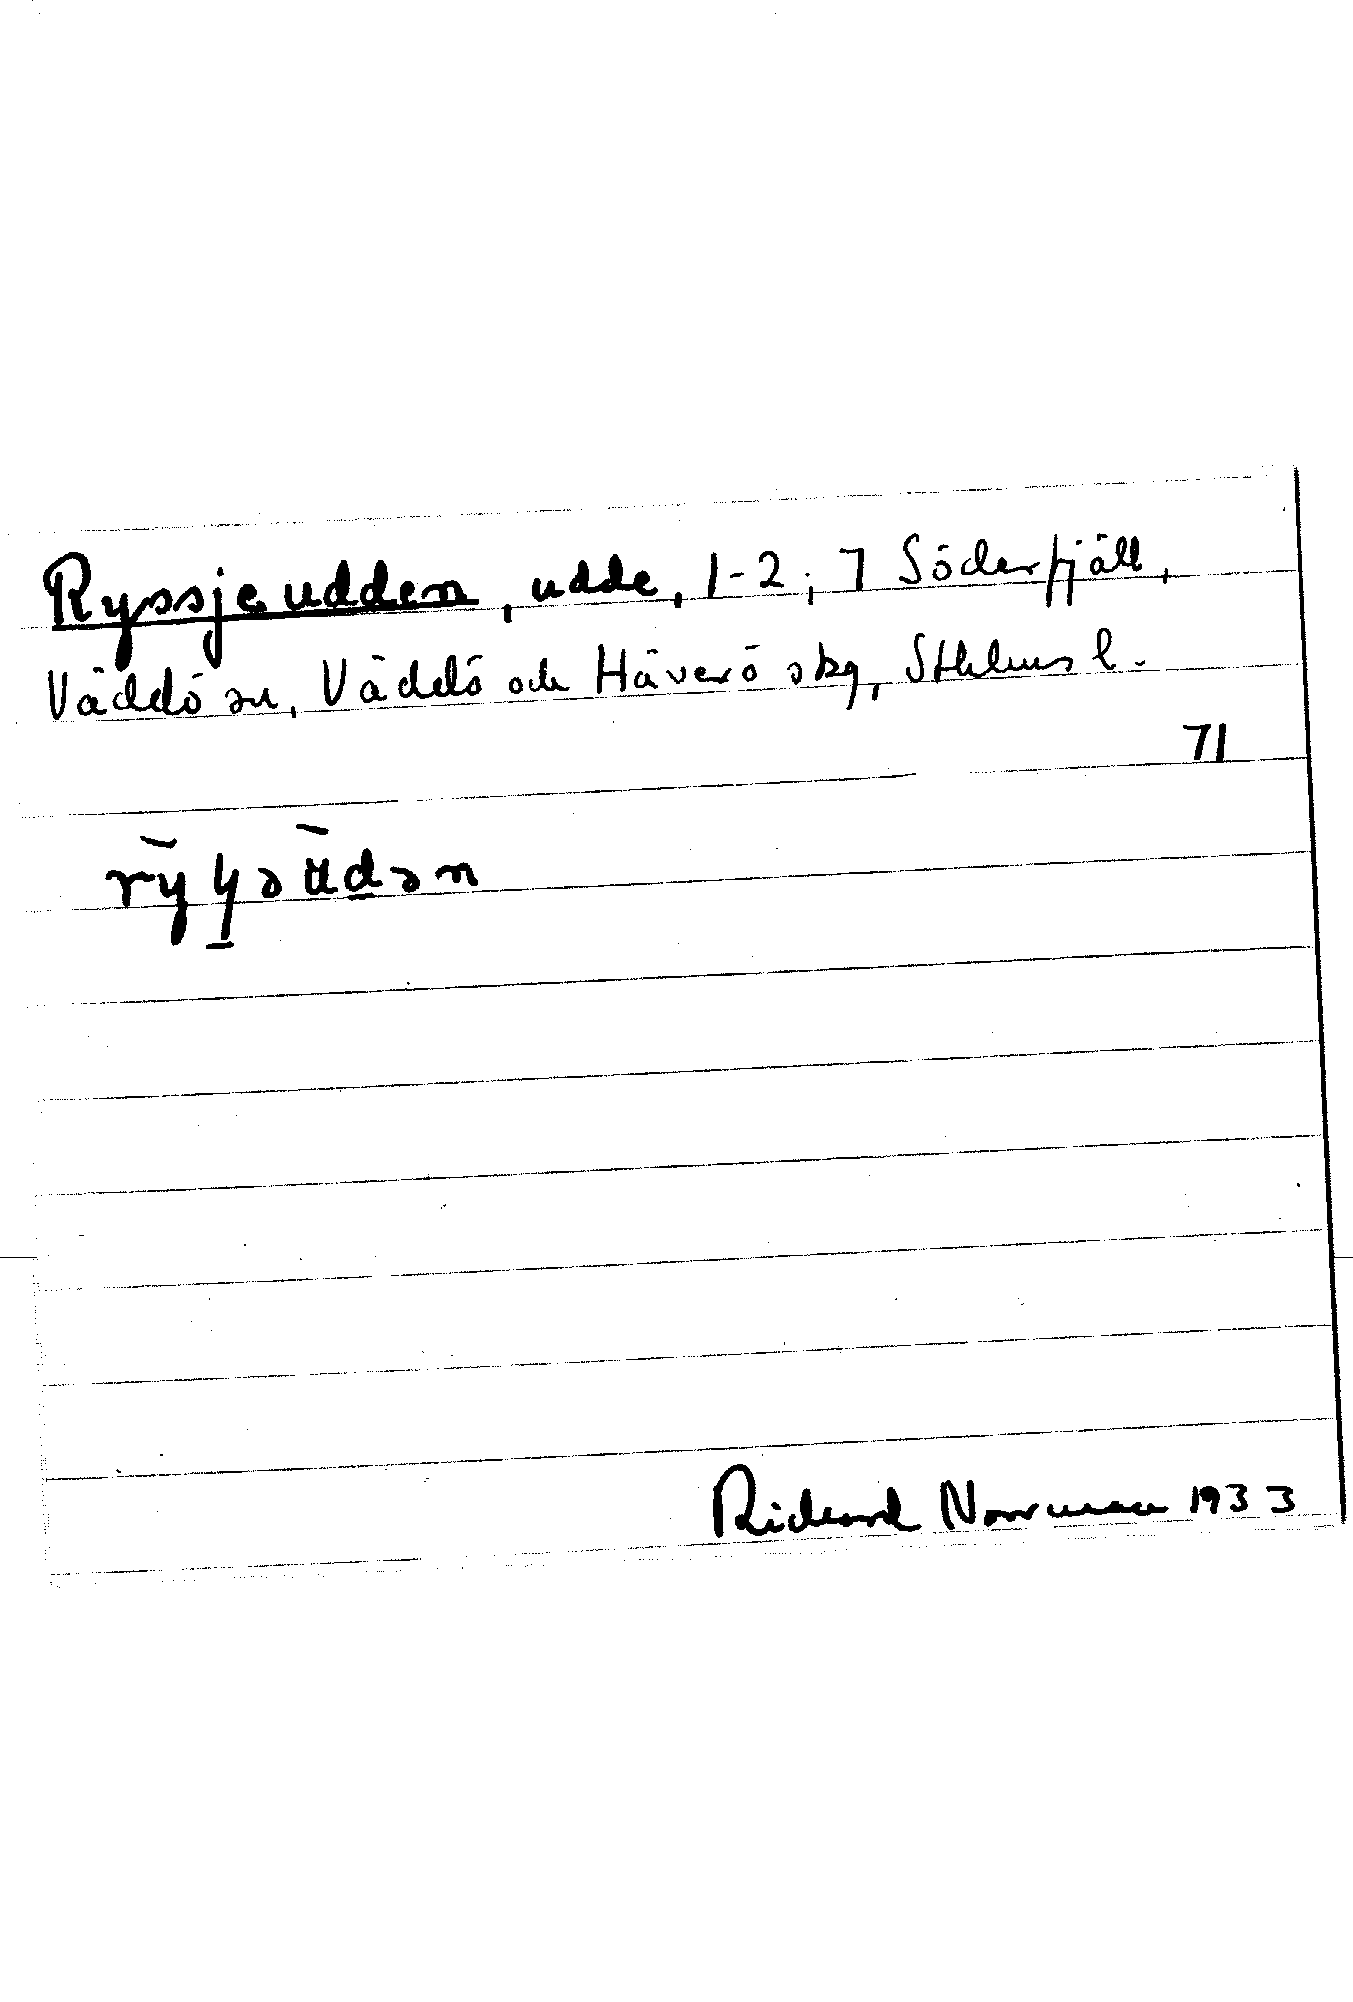 Ryssjeudden, udde, 1-2; 7 Söderfjäll,
Väddö sn, Väddö och Häverö skg, Sthlms l.
71
Rickard Norrman 1933